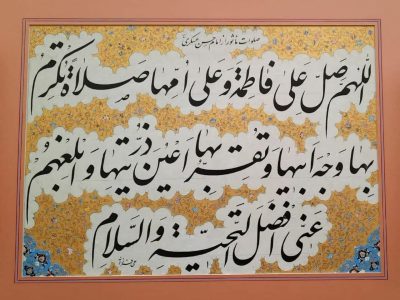 صلوات مأثور از امام حسن عسکری
اللهم صلّ علی فاطمة و علی امها صلاة تکرم
بها وجه ابیها و تقر بها اعین ذریتها و ابلغهم
عنی افضل التحیة والسلام